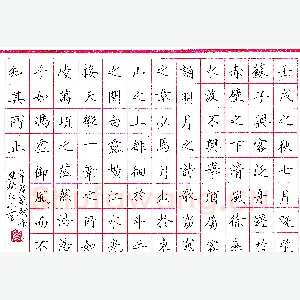 壬戌之秋七月既望
蘇子與客泛舟遊於
赤壁之下清風徐來
水波不興舉酒屬客
誦明月之詩歌窈窕
之章少焉月出於東
山之上徘徊於斗牛
之間白露橫江水光
接天縱一葦之所如
凌萬頃之茫然浩浩
乎如馮虛御風而不
知其所止